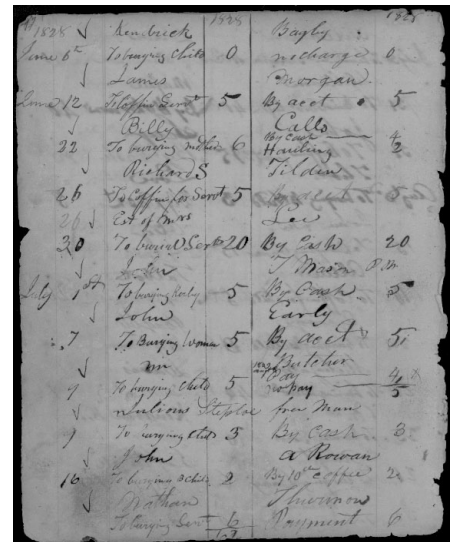 1828 Kendrick 1828 Bagby 1828
June 6th To burying Child 0 no charge 0
James Morgan
June 12 To Coffin Servt 5 By acct 5
Billy Calls
22 To burying mother 6 By Cash 4
Hauling 2
Richard S Tilden
26 To Coffin for Servt 5
26 Est of Mrs Lee
30 To burial Servts 20 By Cash 20
John T Mason
July 1st To burying 5 By Cash 5
John Early
7 To Burying Woman 5 By acct 5
Mr Butcher
9 To burying Child 5 no pay 5
Steptoe free Man
9 To burying Child 3 By Cash 3
John A Rowan
16 To burying a Child 2 By 10 lb Coffee 2
Nathan Thurmon
To Burying Servt 6 Payment 6